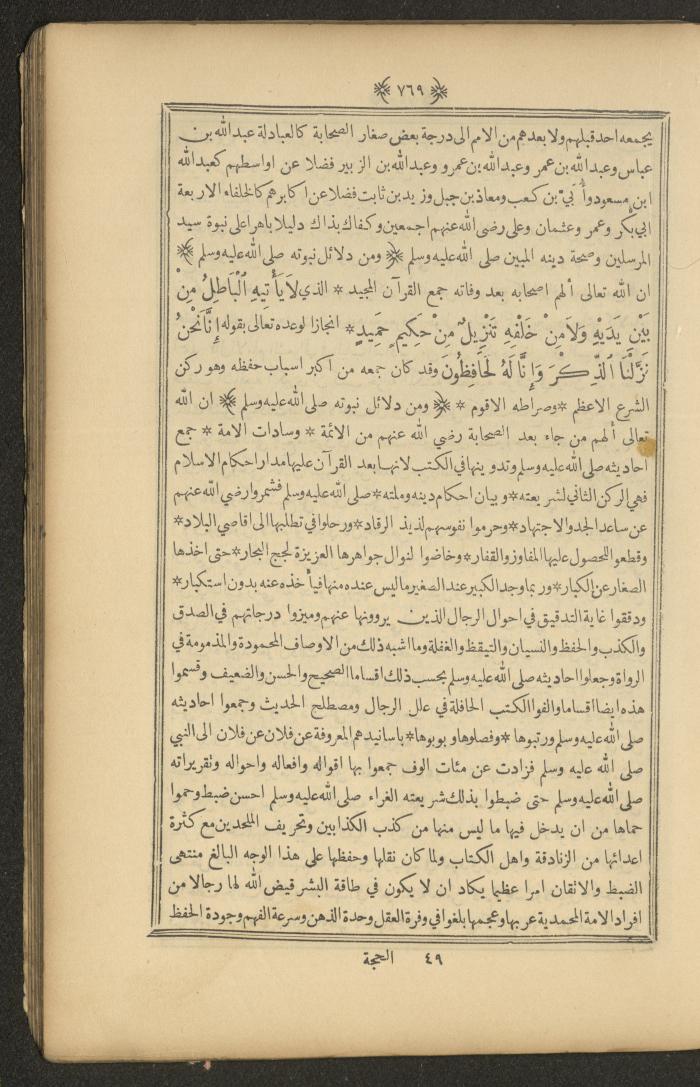 ﴿ ٧٦٩ ﴾
يجمعه احد قبلهم ولا بعدهم من الامم الى درجة بعض صغار الصحابة كالعبادلة عبد الله بن
عباس وعبد الله بن عمر وعبد الله بن عمرو وعبد الله بن الزبير فضلا عن اواسطهم كعبد الله
ابن مسعود وأبيّ بن كعب ومعاذ بن جبل وزيد بن ثابت فضلا عن اكابرهم كالخلفاء الاربعة
ابي بكر وعمر وعثمان وعلي رضى الله عنهم اجمعين وكفاك بذاك دليلا باهرا على نبوة سيد
المرسلين وصحة دينه المبين صلى الله عليه وسلم ﴿ ومن دلائل نبوته صلى الله عليه وسلم ﴾
ان الله تعالى ألهم اصحابه بعد وفاته جمع القرآن المجيد * الذي لَا يَأْتِيهِ ٱلْبَاطِلُ مِنْ
بَيْنِ يَدَيْهِ وَلَا مِنْ خَلْفِهِ تَنْزِيلٌ مِنْ حَكِيمٍ حَمِيدٍ * انجازا لوعده تعالى بقوله إِنَّا نَحْنُ
نَزَّلْنَا ٱلذِّكْرَ وَإِنَّا لَهُ لَحَافِظُونَ وقد كان جمعه من اكبر اسباب حفظه وهو ركن
الشرع الاعظم * وصراطه الاقوم * ﴿ ومن دلائل نبوته صلى الله عليه وسلم ﴾ ان الله
تعالى ألهم من جاء بعد الصحابة رضي الله عنهم من الائمة * وسادات الامة * جمع
احاديثه صلى الله عليه وسلم وتدوينها في الكتب لانها بعد القرآن عليها مدار احكام الاسلام
فهي الركن الثاني لشريعته * وبيان احكام دينه وملته * صلى الله عليه وسلم فشمروا رضي الله عنهم
عن ساعد الجد والاجتهاد * وحرموا نفوسهم لذيذ الرقاد * ورحلوا في تطلبها الى اقاصي البلاد *
وقطعوا للحصول عليها المفاوز والقفار * وخاضوا لنوال جواهرها العزيزة لجج البحار * حتى اخذها
الصغار عن الكبار * وربما وجد الكبير عند الصغير ما ليس عنده منها فيأخذه عنه بدون استكبار *
ودققوا غاية التدقيق في احوال الرجال الذين يروونها عنهم وميزوا درجاتهم في الصدق
والكذب والحفظ والنسيان والتيقظ والغفلة وما اشبه ذلك من الاوصاف المحمودة والمذمومة في
الرواة وجعلوا احاديثه صلى الله عليه وسلم بحسب ذلك اقساما الصحيح والحسن والضعيف وقسموا
هذه ايضا اقساما والفوا الكتب الحافلة في علل الرجال ومصطلح الحديث وجمعوا احاديثه
صلى الله عليه وسلم ورتبوها * وفصلوها وبوبوها * باسانيدهم المعروفة عن فلان عن فلان الى النبي
صلى الله عليه وسلم فزادت عن مئات الوف جمعوا بها اقواله وافعاله واحواله وتقريراته
صلى الله عليه وسلم حتى ضبطوا بذلك شريعته الغراء صلى الله عليه وسلم احسن ضبط وحموا
حماها من ان يدخل فيها ما ليس منها من كذب الكذابين وتحريف الملحدين مع كثرة
اعدائها من الزنادقة واهل الكتاب ولما كان نقلها وحفظها على هذا الوجه البالغ منتهى
الضبط والاتقان امرا عظيما يكاد ان لا يكون في طاقة البشر قيض الله لها رجالا من
افراد الامة المحمدية عربها وعجمها بلغوا في وفرة العقل وحدة الذهن وسرعة الفهم وجودة الحفظ
٤٩ الحجة